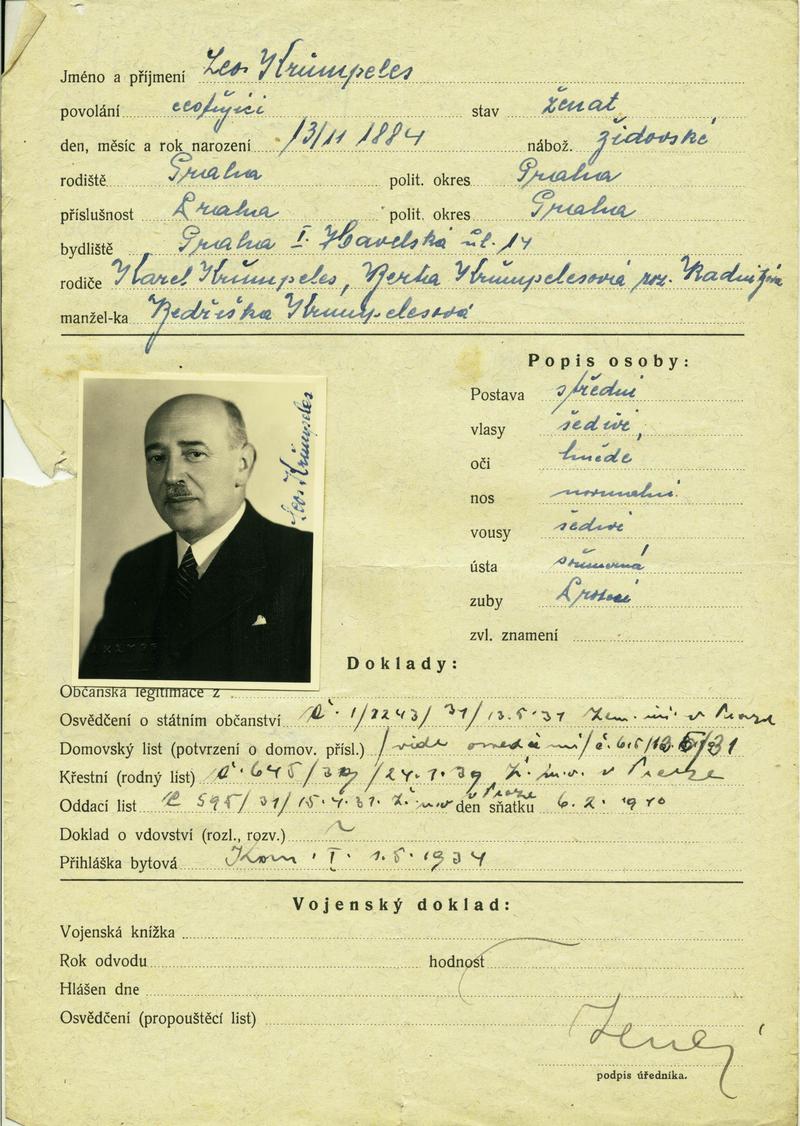 Jméno a příjmení Leo Krümpeles
povolání cestující stav ženat
den, měsíc a rok narození 13/11 1884 nábož. židovské
rodiště Praha polit. okres Praha
příslušnost Praha polit. okres Praha
bydliště Praha I. Havelská úl. 14
rodiče Karel Krümpeles, Berta Krümpelesová roz.
manžel-ka Bedřiška Krümpelesová
Popis osoby:
Postava střední
vlasy šedivé,
oči hnědé
Leo Krümpeles
nos normalní
vousy šedivé
ústa souměrná
zuby
zvl. znamení
Doklady:
Občanská legitimace z
Osvědčení o státním občanství č. 1/2243/31/13.5.31 v Praze
Domovský list (potvrzení o domov. přísl.) /vide osvědčení/
Křestní (rodný list) č. 645/39/24.1.39 ž. m. v. v Praze
Oddací list č 595/31/15.4.31. v Praze den sňatku 6. 2. 1910
Doklad o vdovství (rozl., rozv.)
Přihláška bytová Kom. I. 1.5.1934
Vojenský doklad:
Vojenská knížka
Rok odvodu hodnost
Hlášen dne
Osvědčení (propouštěcí list)
podpis úředníka.